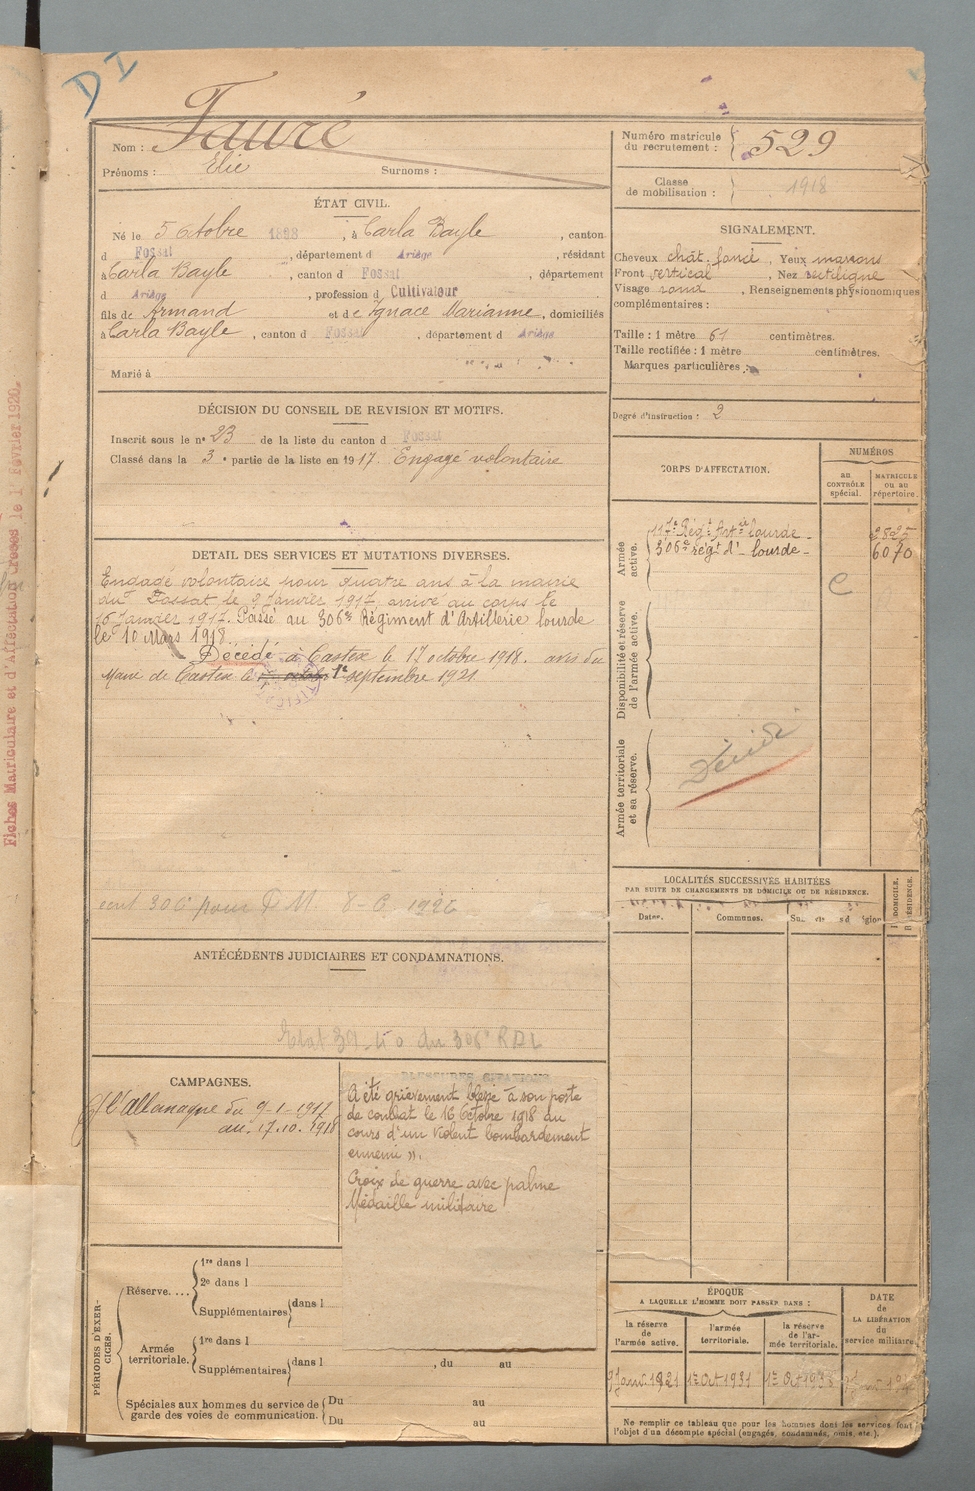 DI
Nom : Fauré
Prénoms : Elie Surnoms :
Numéro matricule du recrutement : 529
Classe de mobilisation : 1918
ÉTAT CIVIL.
Né le 5 Octobre 1898, à Carla Bayle, canton
d Fossat, département d Ariège, résidant
à Carla Bayle, canton d Fossat, département
d Ariège, profession d Cultivateur
fils de Armand et de Ignace Marianne, domiciliés
à Carla Bayle, canton d Fossat, département d Ariège
Marié à
SIGNALEMENT.
Cheveux chât. foncé, Yeux marrons
Front vertical, Nez rectiligne
Visage rond, Renseignements physionomiques
complémentaires :
Taille : 1 mètre 61 centimètres.
Taille rectifiée : 1 mètre centimètres.
Marques particulières :
Degré d'instruction : 2
DÉCISION DU CONSEIL DE REVISION ET MOTIFS.
Inscrit sous le n° 23 de la liste du canton d Fossat
Classé dans la 3e partie de la liste en 1917. Engagé volontaire
DÉTAIL DES SERVICES ET MUTATIONS DIVERSES.
Engagé volontaire pour quatre ans à la mairie
du Fossat le 9 Janvier 1917 arrivé au corps le
16 Janvier 1917. Passé au 306e Régiment d'Artillerie lourde
le 10 Mars 1918.
Décédé à Castex le 17 octobre 1918. avis du
Maire de Castex le 1er septembre 1921
écrit 306 pour 8-6 1926
CORPS D'AFFECTATION.
NUMÉROS
au CONTRÔLE spécial.
MATRICULE ou au répertoire.
Armée active.
117e Régt Artie lourde 2825
306e régt d'- lourde 6070
C
Disponibilité et réserve de l'armée active.
Armée territoriale et sa réserve.
Décédé
LOCALITÉS SUCCESSIVES HABITÉES
PAR SUITE DE CHANGEMENTS DE DOMICILE OU DE RÉSIDENCE.
Dates.
Communes.
D. DOMICILE.
R. RÉSIDENCE.
ANTÉCÉDENTS JUDICIAIRES ET CONDAMNATIONS.
Etat du 306e
CAMPAGNES.
C/ l'Allemagne du 9-1-1917
au 17.10.1918
A été grièvement blessé à son poste
de combat le 16 Octobre 1918 au
cours d'un violent bombardement
ennemi ».
Croix de guerre avec palme
Médaille militaire
PÉRIODES D'EXERCICES.
Réserve....
1re dans l
2e dans l
Supplémentaires dans l
Armée territoriale.
1re dans l
Supplémentaires dans l , du au
Spéciales aux hommes du service de garde des voies de communication.
Du au
Du au
ÉPOQUE
A LAQUELLE L'HOMME DOIT PASSER DANS :
la réserve de l'armée active.
l'armée territoriale.
la réserve de l'armée territoriale.
DATE de LA LIBÉRATION du service militaire.
9 Janv. 1921 1er Oct 1931
Ne remplir ce tableau que pour les hommes dont les services font
l'objet d'un décompte spécial (engagés, condamnés, omis, etc.).
Fiches Matriculaire et d'Affectation Créées le 1 Février 1920.